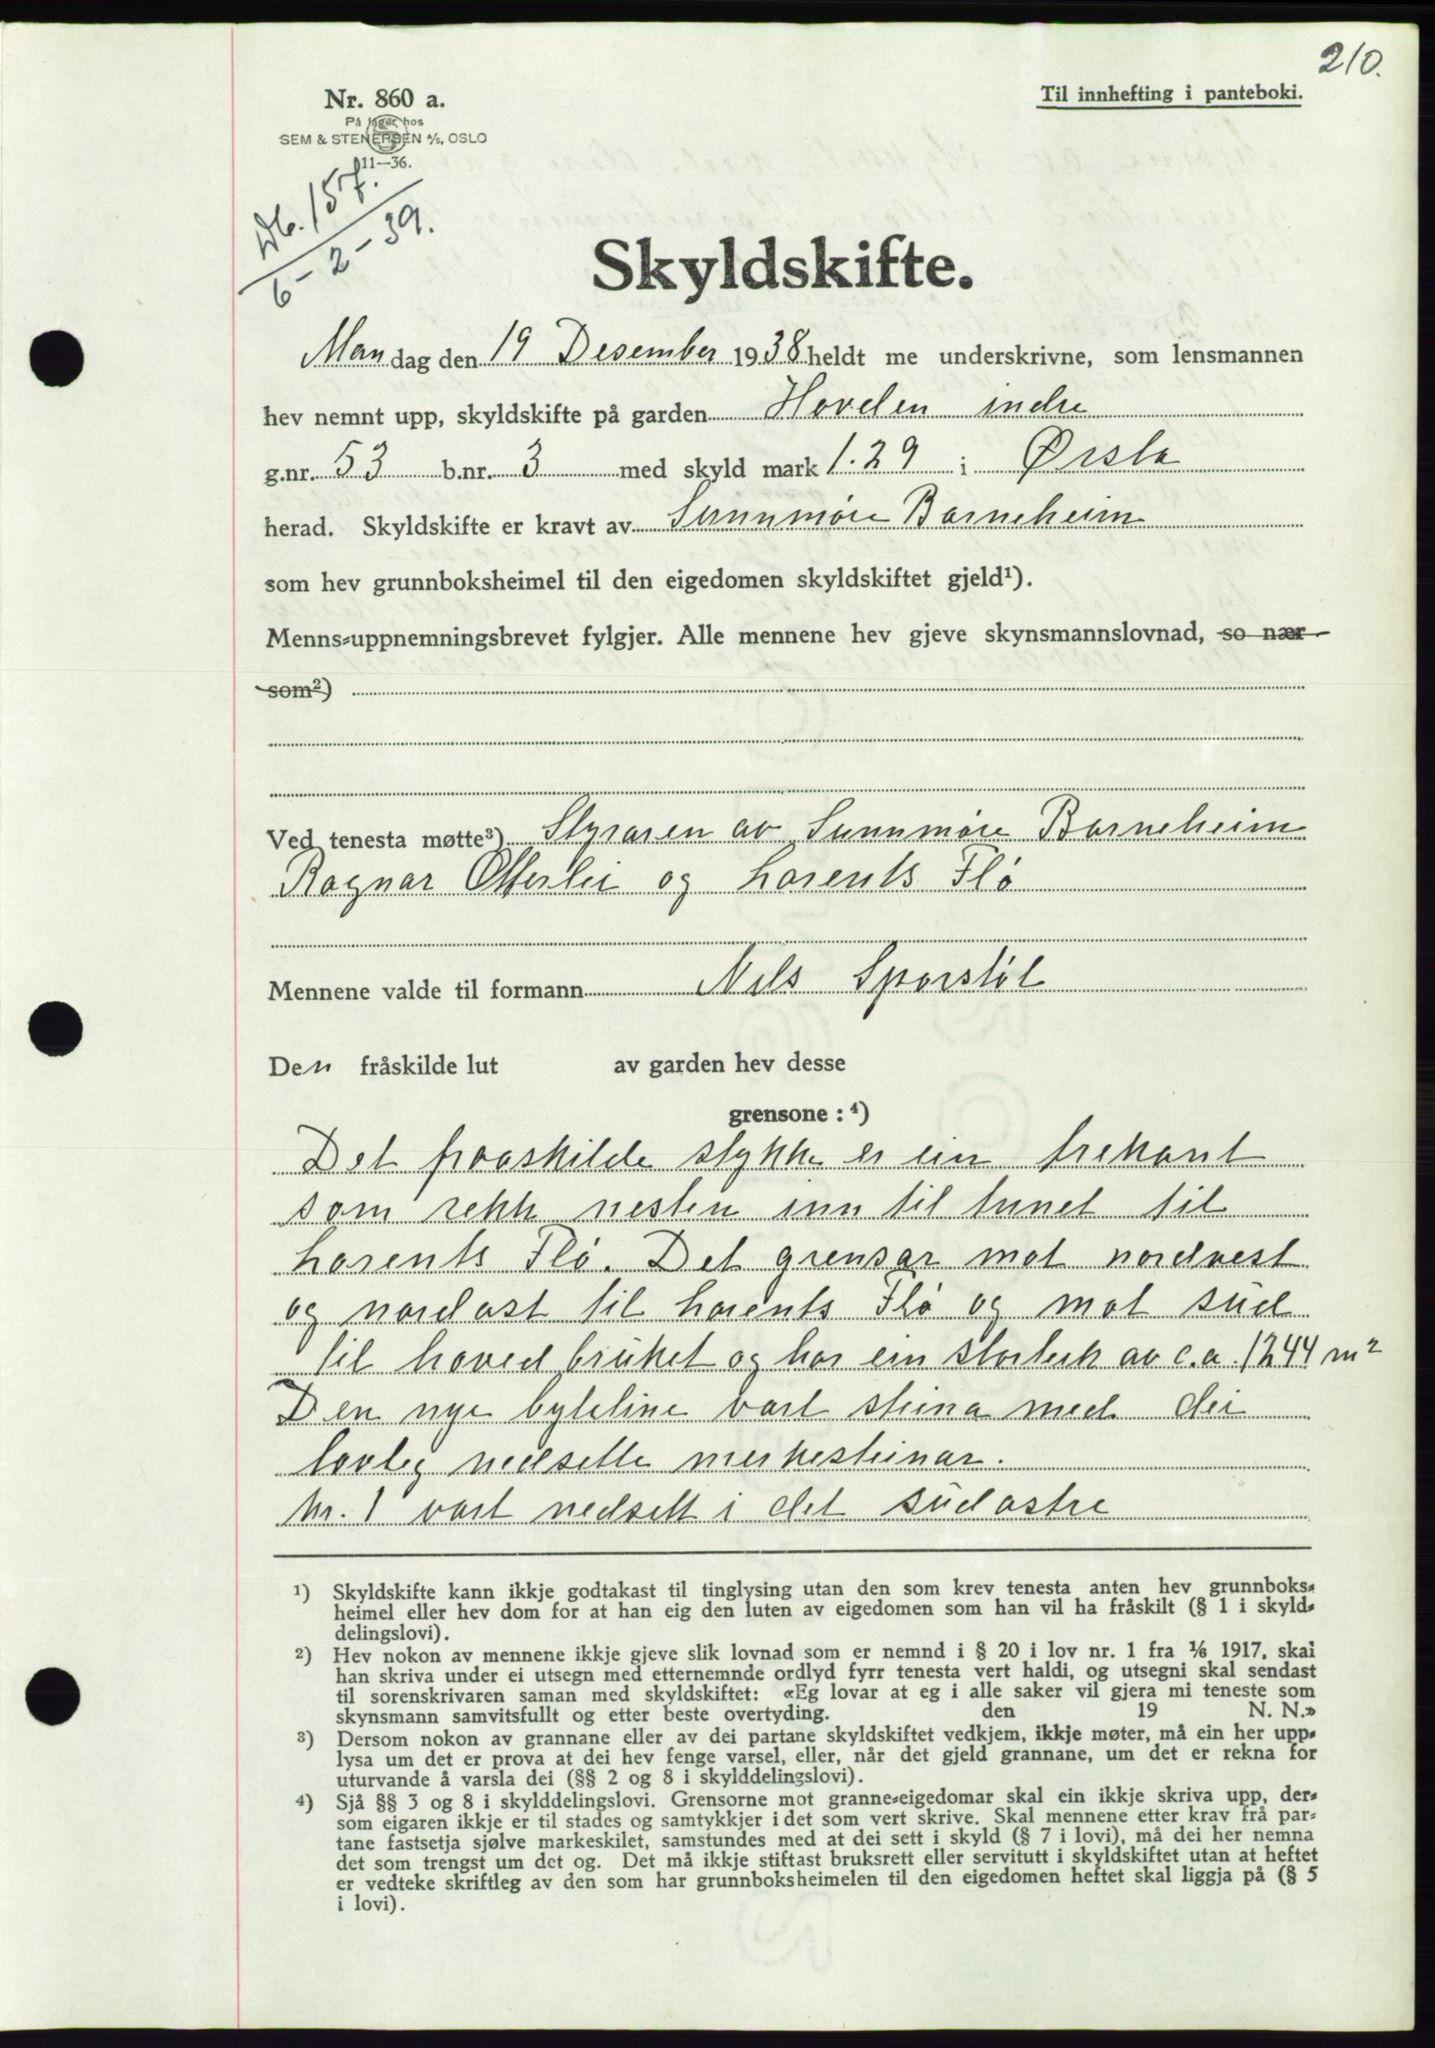 210.
Nr. 860 a.
På lager hos
SEM & STENERSEN A/S, OSLO
11—36.
Til innhefting i panteboki.
Db. 157.
6-2-39.
Skyldskifte.
Mandag den 19 Desember 1938 heldt me underskrivne, som lensmannen
hev nemnt upp, skyldskifte på garden Hovden indre
g.nr. 53 b.nr. 3 med skyld mark 1.29 i Ørsta
herad. Skyldskifte er kravt av Sunnmøre Barneheim
som hev grunnboksheimel til den eigedomen skyldskiftet gjeld¹).
Menns-uppnemningsbrevet fylgjer. Alle mennene hev gjeve skynsmannslovnad, so nær
som²)
Ved tenesta møtte³) Styraren av Sunnmøre Barneheim
Ragnar Otterlei og Lorents Flø
Mennene valde til formann Nils Sporstøl
Den fråskilde lut av garden hev desse
grensone : ⁴)
Det fraaskilde stykke er ein trekant
som rekk nesten inn til tunet til
Lorents Flø. Det grensar mot nordvest
og nordost til Lorents Flø og mot süd
til hovedbrüket og har ein storleik av c.a. 1244 m²
Den nye byteline vart steina med dei
lovleg nedsette merkesteinar.
Nr. 1 vart nedsett i det südostre
¹) Skyldskifte kann ikkje godtakast til tinglysing utan den som krev tenesta anten hev grunnboks-
heimel eller hev dom for at han eig den luten av eigedomen som han vil ha fråskilt (§ 1 i skyld-
delingslovi).
²) Hev nokon av mennene ikkje gjeve slik lovnad som er nemnd i § 20 i lov nr. 1 fra 1/6 1917, skal
han skriva under ei utsegn med etternemnde ordlyd fyrr tenesta vert haldi, og utsegni skal sendast
til sorenskrivaren saman med skyldskiftet: «Eg lovar at eg i alle saker vil gjera mi teneste som
skynsmann samvitsfullt og etter beste overtyding. den 19 N. N.»
³) Dersom nokon av grannane eller av dei partane skyldskiftet vedkjem, ikkje møter, må ein her upp-
lysa um det er prova at dei hev fenge varsel, eller, når det gjeld grannane, um det er rekna for
uturvande å varsla dei (§§ 2 og 8 i skylddelingslovi).
⁴) Sjå §§ 3 og 8 i skylddelingslovi. Grensorne mot granne-eigedomar skal ein ikkje skriva upp, der-
som eigaren ikkje er til stades og samtykkjer i det som vert skrive. Skal mennene etter krav frå par-
tane fastsetja sjølve markeskilet, samstundes med at dei sett i skyld (§ 7 i lovi), må dei her nemna
det som trengst um det og. Det må ikkje stiftast bruksrett eller servitutt i skyldskiftet utan at heftet
er vedteke skriftleg av den som har grunnboksheimelen til den eigedomen heftet skal liggja på (§ 5
i lovi).